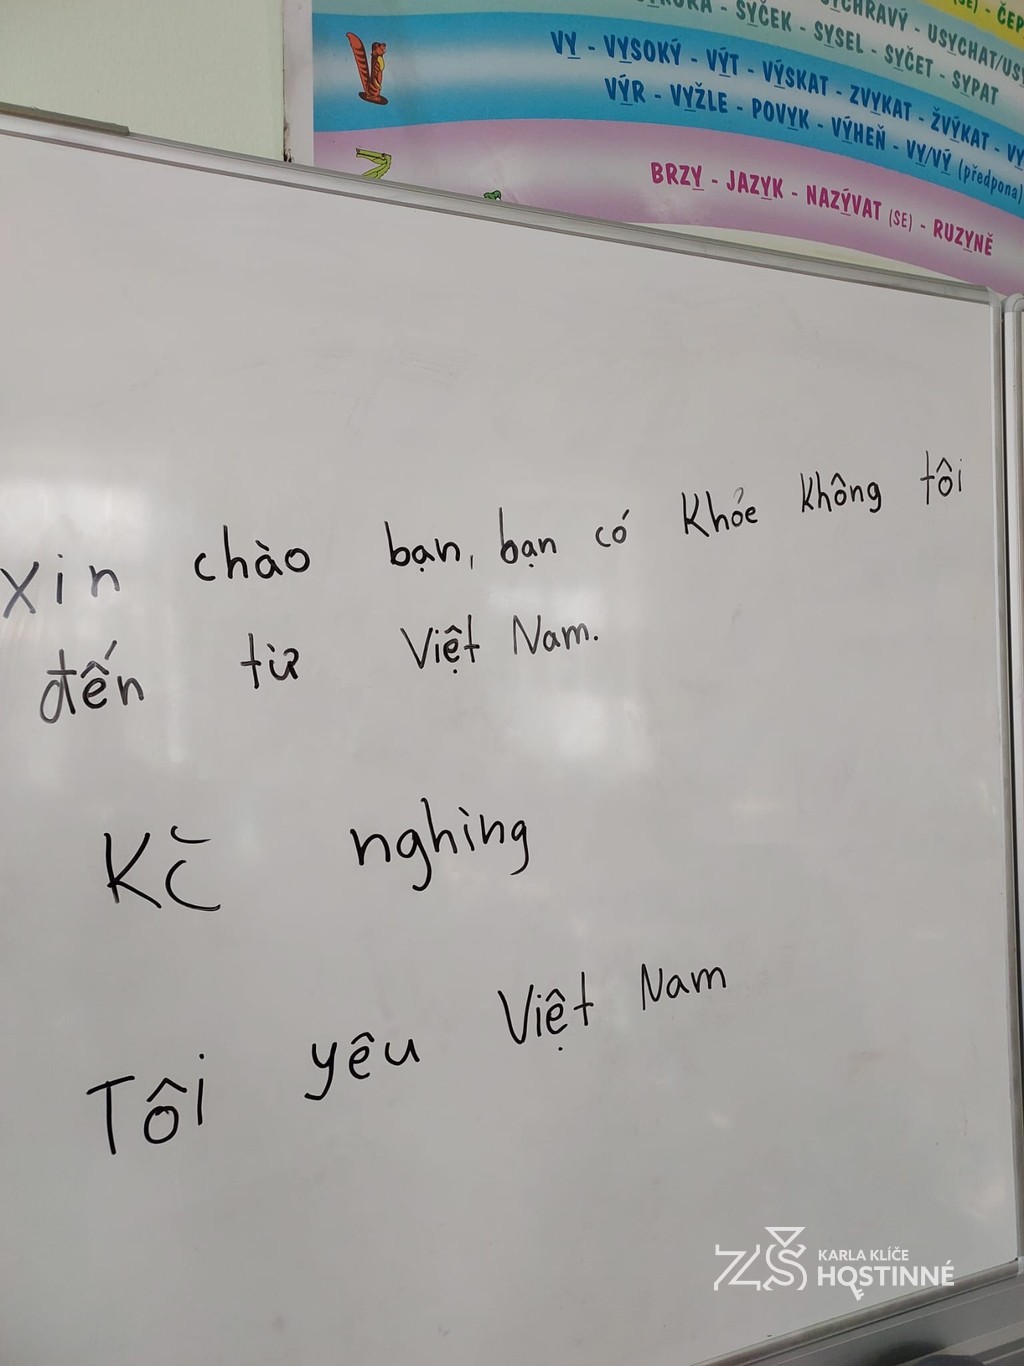 (SE) - ČEP
SÝKORA - SYČEK - SYCHRAVÝ - USYCHAT/USY
SYSEL - SYČET - SYPAT
VY - VYSOKÝ - VÝT - VÝSKAT - ZVYKAT - ŽVÝKAT - VY
VÝR - VYŽLE - POVYK - VÝHEŇ - VY/VÝ (předpona)
BRZY - JAZYK - NAZÝVAT (SE) - RUZYNĚ
Xin chào bạn, bạn có Khỏe Không tôi
đến từ Việt Nam.
Kč nghìng
Tôi yêu Việt Nam
ZŠ KARLA KLÍČE
HOSTINNÉ